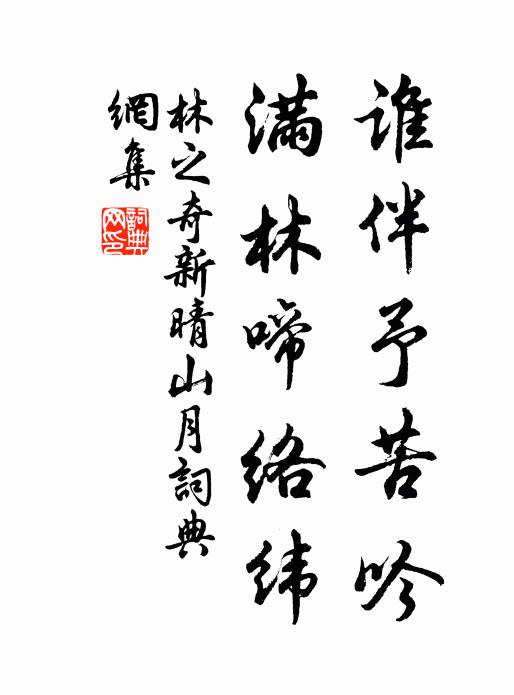 誰伴予苦吟
滿林啼絡緯
林之奇新晴山月詞典
網集
詞典網印